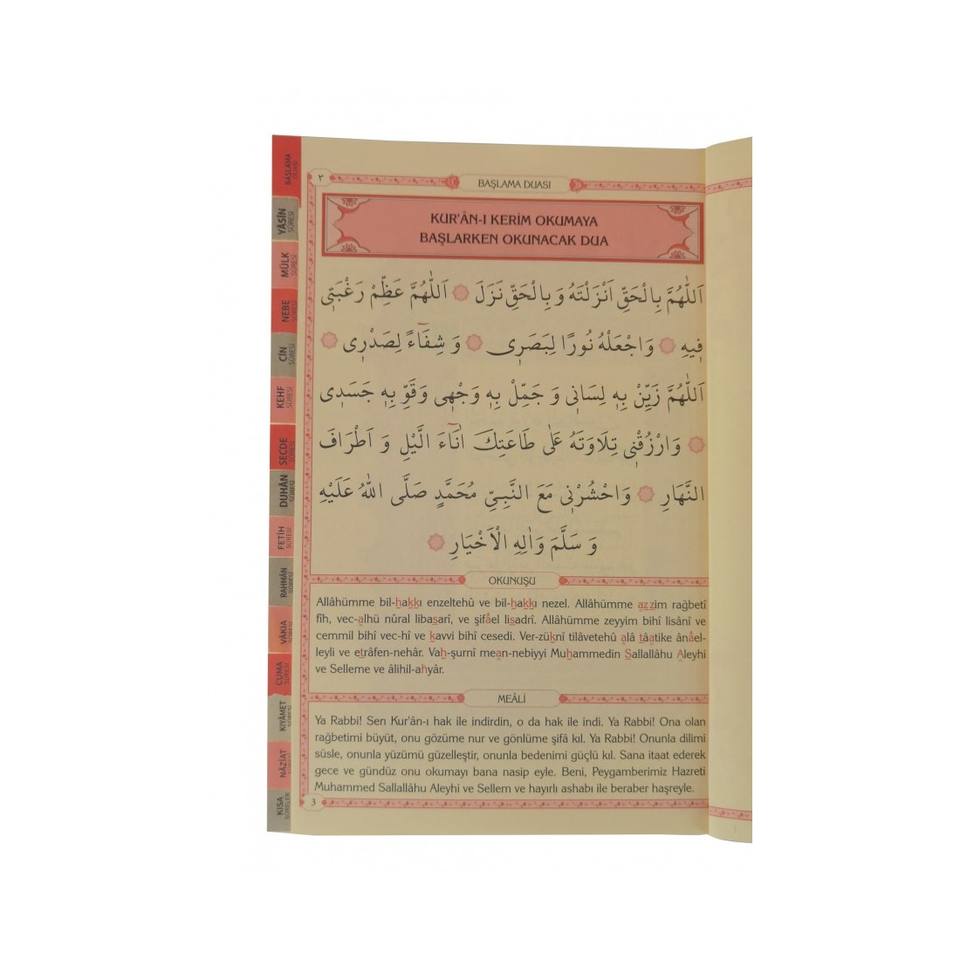 BAŞLAMA DUASI
YÂSİN SÛRESİ
MÜLK SÛRESİ
NEBE SÛRESİ
CİN SÛRESİ
KEHF SÛRESİ
SECDE SÛRESİ
DUHÂN SÛRESİ
FETİH SÛRESİ
RAHMÂN SÛRESİ
VÂKIA SÛRESİ
CUMA SÛRESİ
KIYÂMET SÛRESİ
NÂZİAT SÛRESİ
KISA SÛRELER
٢
BAŞLAMA DUASI
KUR'ÂN-I KERİM OKUMAYA
BAŞLARKEN OKUNACAK DUA
اَللّٰهُمَّ بِالْحَقِّ اَنْزَلْتَهُ وَ بِالْحَقِّ نَزَلَ ۞ اَللّٰهُمَّ عَظِّمْ رَغْبَت۪ي
ف۪يهِ ۞ وَ اجْعَلْهُ نُورًا لِبَصَر۪ى ۞ وَ شِفَٓاءً لِصَدْر۪ى ۞
اَللّٰهُمَّ زَيِّنْ بِه۪ لِسَان۪ى وَ جَمِّلْ بِه۪ وَجْه۪ى وَقَوِّ بِه۪ جَسَد۪ى
۞ وَ ارْزُقْن۪ى تِلَاوَتَهُ عَلٰى طَاعَتِكَ اٰنَٓاءَ الَّيْلِ وَ اَطْرَافَ
النَّهَارِ ۞ وَاحْشُرْن۪ى مَعَ النَّبِيِّ مُحَمَّدٍ صَلَّى اللّٰهُ عَلَيْهِ
وَ سَلَّمَ وَاٰلِهِ الْاَخْيَارِ ۞
OKUNUŞU
Allâhümme bil-hakkı enzeltehû ve bil-hakkı nezel. Allâhümme azzim rağbetî
fîh, vec-alhü nûral libasarî, ve şifâel lisadrî. Allâhümme zeyyim bihî lisânî ve
cemmil bihî vec-hî ve kavvi bihî cesedî. Ver-züknî tilâvetehû alâ tâatike ânâel-
leyli ve etrâfen-nehâr. Vah-şurnî mean-nebiyyi Muhammedin Sallallâhu Aleyhi
ve Selleme ve âlihil-ahyâr.
MEÂLİ
Ya Rabbi! Sen Kur'ân-ı hak ile indirdin, o da hak ile indi. Ya Rabbi! Ona olan
rağbetimi büyüt, onu gözüme nur ve gönlüme şifâ kıl. Ya Rabbi! Onunla dilimi
süsle, onunla yüzümü güzelleştir, onunla bedenimi güçlü kıl. Sana itaat ederek
gece ve gündüz onu okumayı bana nasip eyle. Beni, Peygamberimiz Hazreti
Muhammed Sallallâhu Aleyhi ve Sellem ve hayırlı ashabı ile beraber haşreyle.
3